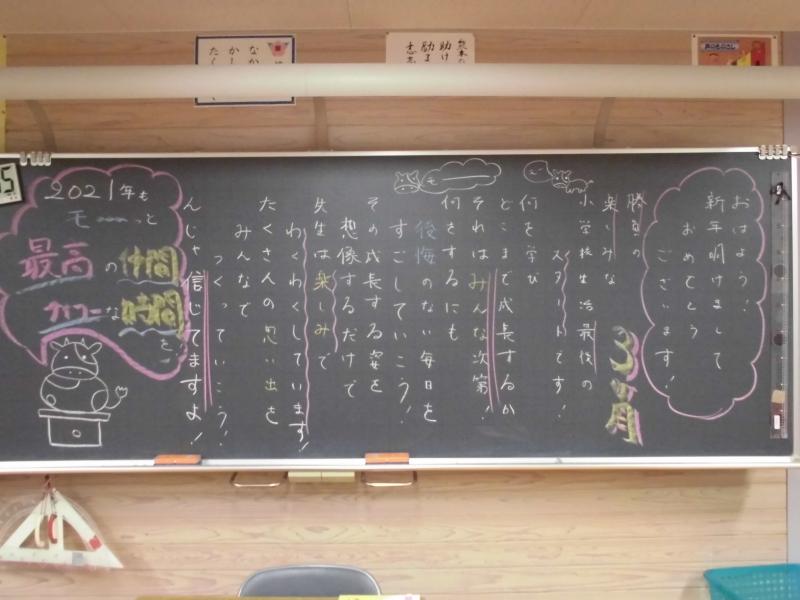 おはよう!
新年明けまして
おめでとう
ございます!
勝負の
楽しみな
3ヶ月
小学校生活最後の
スタートです!
何を学び
どこまで成長するか
それはみんな次第!
何をするにも
後悔のない毎日を
すごしていこう!
その成長する姿を
想像するだけで
先生は楽しみで
わくわくしています!
たくさんの思い出を
みんなで
つくっていこう!
んじゃ信じてますよ!
2021年も
モ〜〜っと
最高の仲間
な時間
を
モ